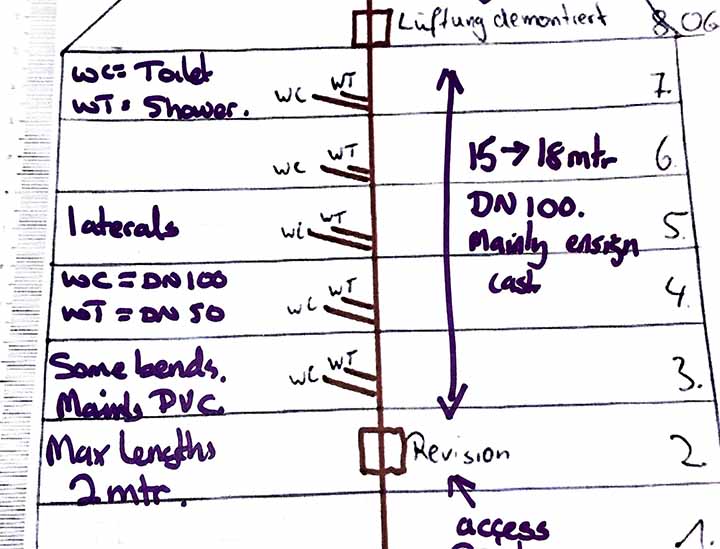 Lüftung demontiert 8.OG
WC = Toilet
WT = Shower.
WC WT
7.
WC WT
15 → 18 mtr
6.
laterals
WC WT
DN 100.
Mainly ensign
cast
5.
WC = DN 100
WT = DN 50
WC WT
4.
Some bends.
Mainly PVC.
WC WT
3.
Max Lengths
2 mtr.
Revision
2.
access
1.